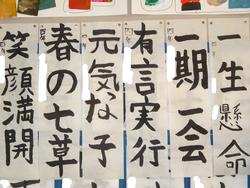 生懸命
一期一会
有言実行
元気な子
春の七草
笑顔満開